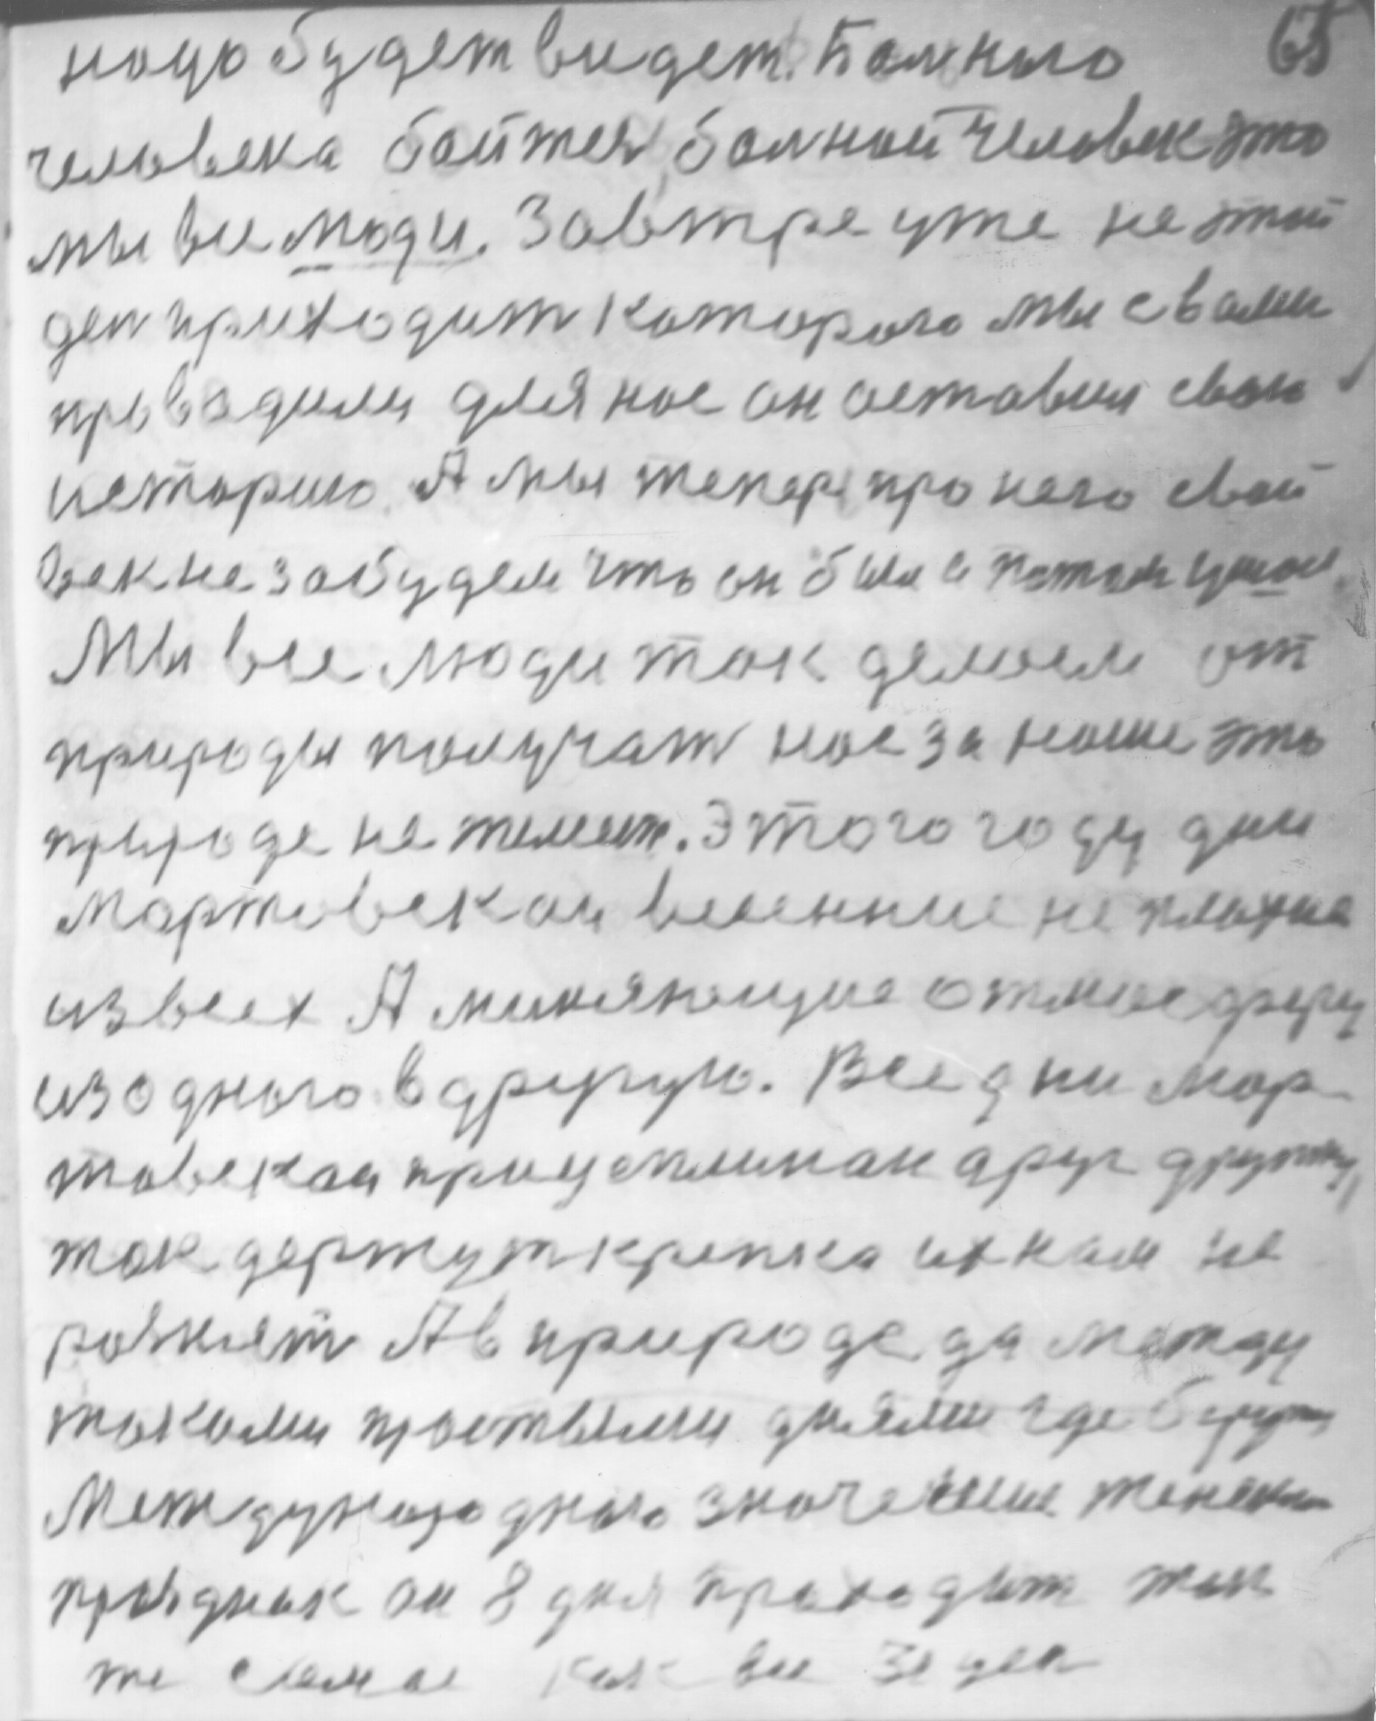 65
ноцю будет видет. Болного
человека бойтея, болной человек это
мы все люди. Завтре уже не этот
ден приходит которого мы с вами
провадили для нас он оставил свою
историю. А мы тепер про него свой
век не забудем что он был и потом ушол.
Мы все люди так делаем от
природы получат нас за наше это
природе не желает. Этого году дни
мартовскаи весенние не плохие
из всех А миняющие отмасферу
из одного в другую. Все дни мар
товскаи прицыплинаи друг дружку,
так держут крепка их нам не
А в природе да между
такими простыми днями где берут
Международного значение женский
празднак он 8 дня праходит так
же самае как все